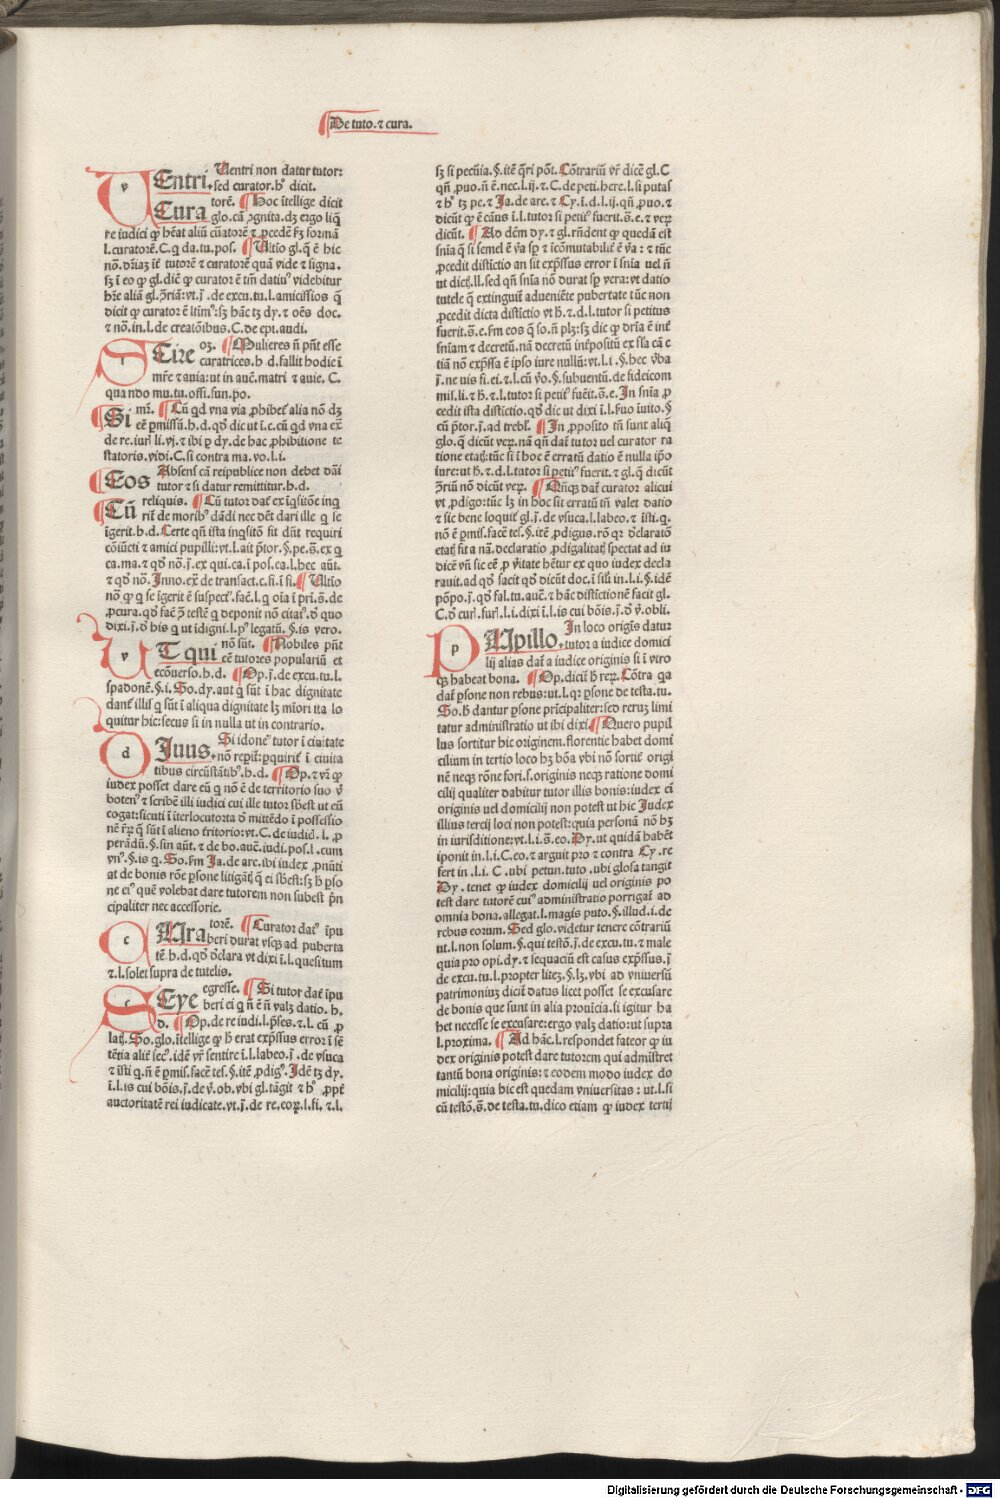 De tuto. ⁊ cura.
Entri. Uentri non datur tutor:
sed curator. h. dicit.
Cura torē. Hoc ītellige dicit
glo. cā ꝯgnita. dʒ ergo liq̄
re iudici ꝙ hēat aliū cūatorē ⁊ ꝓcedēt fʒ formā
l. curatorē. C. q da. tu. pos. Ultīo gl. q̄ ē hic
nō. dāiaʒ īt tutorē ⁊ curatorē quā vide ⁊ signa.
sʒ ī eo ꝙ gl. dic̄ ꝙ curator ē tm̄ datiuꝰ videbitur
hr̄e aliā gl. ꝯriā: vt. j. de excu. tu. l. amicissios q̄
dicit ꝙ curator ē ltīmꝰ: sʒ hāc tʒ dy. ⁊ oēs doc.
⁊ nō. in. l. de creatōibus. C. de epi. audi.
Cire oʒ. Mulieres n̄ pn̄t esse
curatrices. h. d. fallit hodie ī
mr̄e ⁊ auia: ut in auc̄. matri ⁊ auie. C.
qua ndo mu. tu. offi. fun. po.
Si mr̄. Cū qd vna via ꝓhibet alia nō dʒ
eē ꝑmissū. h. d. qd dic ut ī. c. cū qd vna
de re. iur. li. vj. ⁊ ibi ꝑ dy. de hac ꝓhibitione te
statoris. vidi. C. si contra ma. vo. l. i.
Eos Absens cā reipublice non debet dāi
tutor ⁊ si datur remittitur. h. d.
Cū reliquis. Cū tutor dat ex īqsitōe inq
rit de moribꝰ dādi nec det dari ille q se
īgerit. h. d. Certe qn̄ ista inqsitō fit dn̄t requiri
cōiūcti ⁊ amici pupilli: vt. l. ait p̄tor. §. pe. s̄. ex q
ca. ma. ⁊ qd nō. j. ex qui. ca. ī pos. ca. l. hec aut.
⁊ qd nō. Inno. ex de transact. c. fi. ī fi. Ultīo
nō ꝙ q se īgerit ē suspectꝰ. fac̄. l. q oīa ī pri. s̄. de
ꝓcura. qd fac̄ ꝯ testē q deponit nō citatꝰ. d quo
dixi. j. d his q ut īdigni. l. pꝰ legatū. §. is vero.
T qui nō sūt. Nobiles pn̄t
eē tutores populariū et
ecōuerso. h. d. Op. j. de excu. tu. l.
spadonē. §. i. So. dy. aut q sūt ī hac dignitate
dant illis q sūt ī aliqua dignitate lʒ mīori ita lo
quitur hic: secus si in nulla ut in contrario.
Iuus. Si idoneꝰ tutor ī ciuitate
nō reꝑit ꝑquirit ī ciuita
tibus circūstātibꝰ. h. d. Op. ⁊ vr̄ ꝙ
iudex posset dare eū q nō ē de territorio suo v̄
hotenꝰ ⁊ scribē illi iudici cui ille tutor sb̄est ut eū
cogat: sicuti ī īterlocutorta d mittēdo ī possessio
nē
ꝑādū. §. sin aut. ⁊ de bo. auc̄. iudi. pos. l. cum
vnꝰ. §. is q. So. fm Ja. de are. ibi iudex ꝓnūti
at de bonis rōe ꝑsone litigātꝭ q̄ ei sb̄est: sʒ h̄ ꝑso
ne eiꝰ quē volebat dare tutorem non subest pn̄
cipaliter nec accessorie.
URa torē. Curator datꝰ īpu
beri durat vsqʒ ad puberta
tē. h. d. qd dclara vt dixi ī. l. quesitum
⁊. l. solet supra de tutelis.
Eye egresse. Si tutor dat īpu
beri ei q n̄ ē n̄ valʒ datio. h.
d. Op. de re iudi. l. p̄ses. ⁊. l. cū ꝓ
latʒ. So. glo. ītellige ꝙ h̄ erat exp̄ssus error ī sē
tētia alit secꝰ. idē vr̄ sentire ī. l. labeo. j. de vsuca
⁊ īsti. q. n̄ ē ꝑmis. facē tes. §. itē ꝓdigꝰ. Idē tʒ dy.
ī. l. is cui bōis. j. de v. ob. vbi gl. tāgit ⁊ hꝰ ꝓpt
auctoritatē rei iudicate. vt. j. de re. coꝝ. l. fi. ⁊. l.
sʒ si pecūia. §. itē q̄ri pōt. Cōtrariū vr̄ dicē gl. C
qn̄ ꝓuo. n̄ ē. nec. l. ij. ⁊. C. de peti. here. l. si putas
⁊ hꝰ tʒ pe. ⁊ Ja. de are. ⁊ Cy. ī. d. l. ij. qn̄ ꝓuo. ⁊
dicūt ꝙ ē cāus ī. l. tutor si petitꝰ fuerit. s̄. e. ⁊ veꝝ
dicūt. Ad dēm dy. ⁊ gl. rn̄dent ꝙ quedā est
snīa q̄ si semel ē v̄a sꝑ ⁊ īcōmutabilit ē v̄a: ⁊ tūc
ꝓcedit distīctio an sit exp̄ssus error ī snīa uel n̄
ut dictʒ. ll. sed qn̄ snīa nō durat sꝑ vera: vt datio
tutele q̄ extinguit adueniēte pubertate tūc non
ꝓcedit dicta distīctio vt h̄. ⁊. d. l. tutor si petitus
fuerit. s̄. e. fm eos q̄ so. n̄ plʒ: sʒ dic ꝙ dr̄ia ē int
snīam ⁊ decretū. nā decretū intꝑositū ex fla cā e
tiā nō exp̄ssa ē ipso iure nullū: vt. l. i. §. hec v̄ba
j. ne vis fi. ei. ⁊. l. cū v̄o. §. subuentū. de fideicom
mis. li. ⁊ h̄. ⁊. l. tutor si petitꝰ fuēit. s̄. e. In snīa ꝓ
cedit ista distīctio. qd dic ut dixi ī. l. fuo īuito. §
cū p̄tor. j. ad trebl. In ꝓposito tn̄ sunt aliq̄
glo. q̄ dicūt veꝝ. nā qn̄ dat tutor uel curator ra
tione etatʒ: tūc si ī hoc ē erratū datio ē nulla ipō
iure: ut h̄. ⁊. d. l. tutor si petitꝰ fuerit. ⁊ gl. q̄ dicūt
ꝯriū nō dicūt veꝝ. Qn̄qʒ dat curator alicui
vt ꝓdigo: tūc lʒ in hoc sit erratū tn̄ valet datio
⁊ sic bene loquit gl. j. de vsuca. l. labeo. ⁊ īsti. q.
nō ē ꝑmis. facē tes. §. itē ꝓdigus. rō qꝛ dclaraō
etatʒ fit a nā. declaratio ꝓdigalitatʒ spectat ad iu
dicē vn̄ sic eē ꝓ v̄itate hētur ex quo iudex decla
rauit. ad qd facit qd dicūt doc. ī sili in. l. i. §. idē
pōpo. j. qd fal. tu. auc̄. ⁊ hāc distīctionē facit gl.
C. d cur. furi. l. i. dixi ī. l. is cui bōis. j. d v̄. obli.
UPillo. In loco origīs datur
tutor a iudice domici
lij alias dat a iudice originis si ī viro
qʒ habeat bona. Op. dicūt h̄ reꝝ. Cōtra qa
dat ꝑsone non rebus: ut. l. qꝛ ꝑsone de testa. tu.
So. h̄ dantur ꝑsone prīcipaliter: sed reruʒ limi
tatur administratio ut ibi dixi. Quero pupil
lus sortitur hic originem. florentie habet domi
cilium in tertio loco hʒ bōa vbi nō sortit origi
nē neqʒ rōne fori. s. originis neqʒ ratione domi
cilij qualiter dabitur tutor illis bonis: iudex ei
originis uel domicilij non potest ut hic Judex
illius tercij loci non potest: quia personā nō hʒ
in iurisditione: vt. l. i. s̄. eo. Dy. ut quidā habēt
īponit in. l. i. C. eo. ⁊ arguit pro ⁊ contra Cy. re
fert in. l. i. C. ubi petun. tuto. ubi glosa tangit
Dy. tenet ꝙ iudex domicilij uel originis po
test dare tutorē cuiꝰ administratio porrigat ad
omnia bona. allegat. l. magis puto. §. illud. j. de
rebus eorum. Sed glo. videtur tenere cōtrariū
ut. l. non solum. §. qui testō. j. de excu. tu. ⁊ male
quia pro opi. dy. ⁊ sequaciū est casus exp̄ssus. j
de excu. tu. l. propter litem. §. lʒ. vbi ad vniuersū
patrimonium dicit datus licet posset se excusare
de bonis que sunt in alia prouīcia. si igitur ha
bet necesse se excusare: ergo valʒ datio: ut supra
l. proxima. Ad hāc. l. respondet fateor ꝙ iu
dex originis potest dare tutorem qui admīstret
tantū bona originis: ⁊ eodem modo iudex do
micilij: quia hic est quedam vniuersitas: ut. l. si
cū testō. s̄. de testa. tu. dico etiam ꝙ iudex tertij
Digitalisierung gefördert durch die Deutsche Forschungsgemeinschaft - DFG